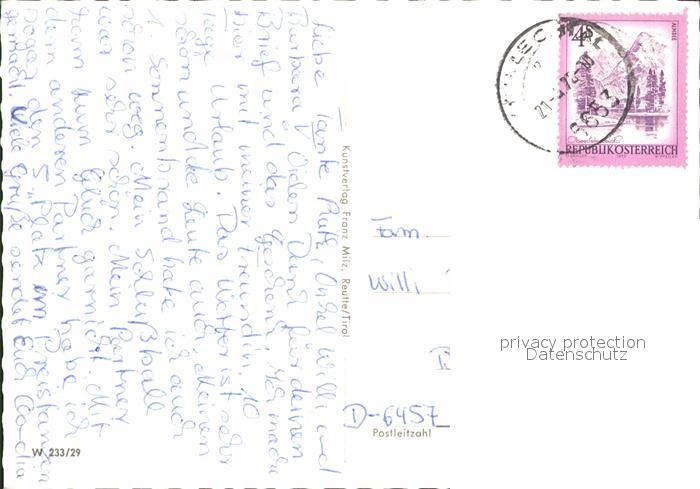 Liebe Tante Ruth, Onkel Willi und
Barbara! Vielen Dank für deinen
Brief und das Geschenk. Ich mache
hier mit meiner Freundin 10
Tage Urlaub. Das Wetter ist sehr
schön und die Leute auch. Meinen
1. Sonnenbrand habe ich auch
schon weg. Mein Schlußball
war sehr schön. Mein Partner
kam zum Glück garnicht. Mit
dem anderen Partner habe ich
sogar den 5. Platz im Preistanzen
gemacht. Viele Grüße sendet Euch
Kunstverlag Franz Milz, Reutte/Tirol
W 233/29
4
S
ALMSEE
REPUBLIK ÖSTERREICH
6653
Fam.
Willi
D-6457
Postleitzahl
privacy protection
Datenschutz